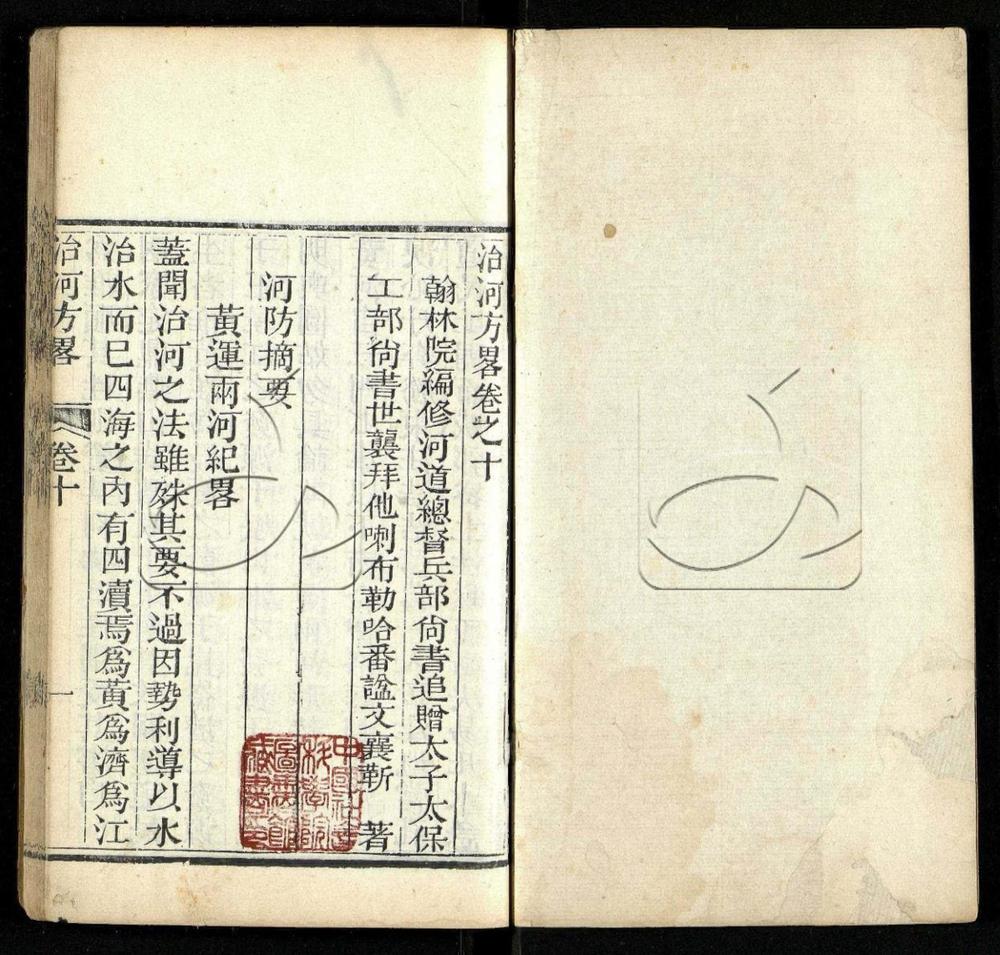 治河方畧卷之十
翰林院編修河道總督兵部尙書追贈太子太保
工部尙書世襲拜他喇布勒哈番諡文襄靳　著
河防摘要
黃運兩河紀畧
蓋聞治河之法雖殊其要不過因勢利導以水
治水而已四海之內有四瀆焉爲黃爲濟爲江
治河方畧
卷十
一
圖書館
藏書